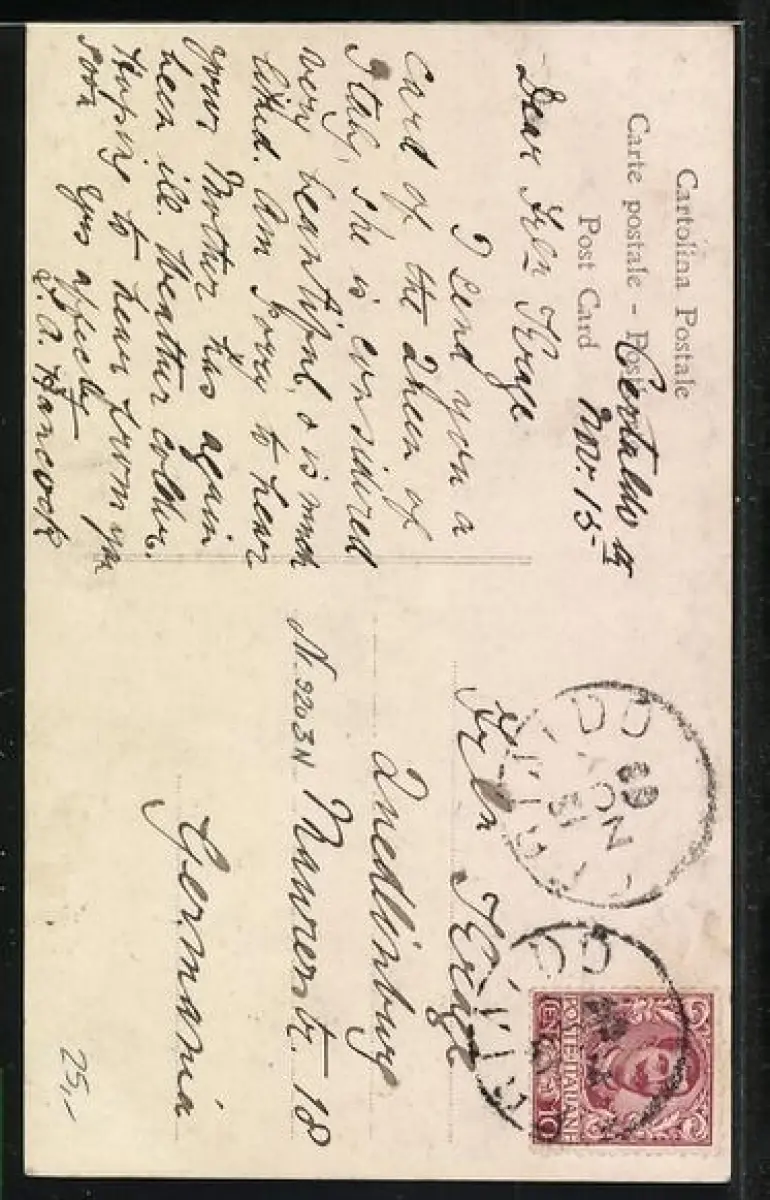 Cartolina Postale
Carte postale - Post
Post Card
Certaldo
Nov. 15
Dear Frln Kruge
I send you a
card of the Queen of
Italy, she is considered
very beautiful, & is much
liked. Am sorry to hear
your Mother has again
been ill. Weather colder.
Hoping to hear from you
soon Yrs affectly
A. Hancock
Frln Kruge
Quedlinburg
Maurerstr. 18
Germania
POSTE ITALIANE
CENT. 10
25,-